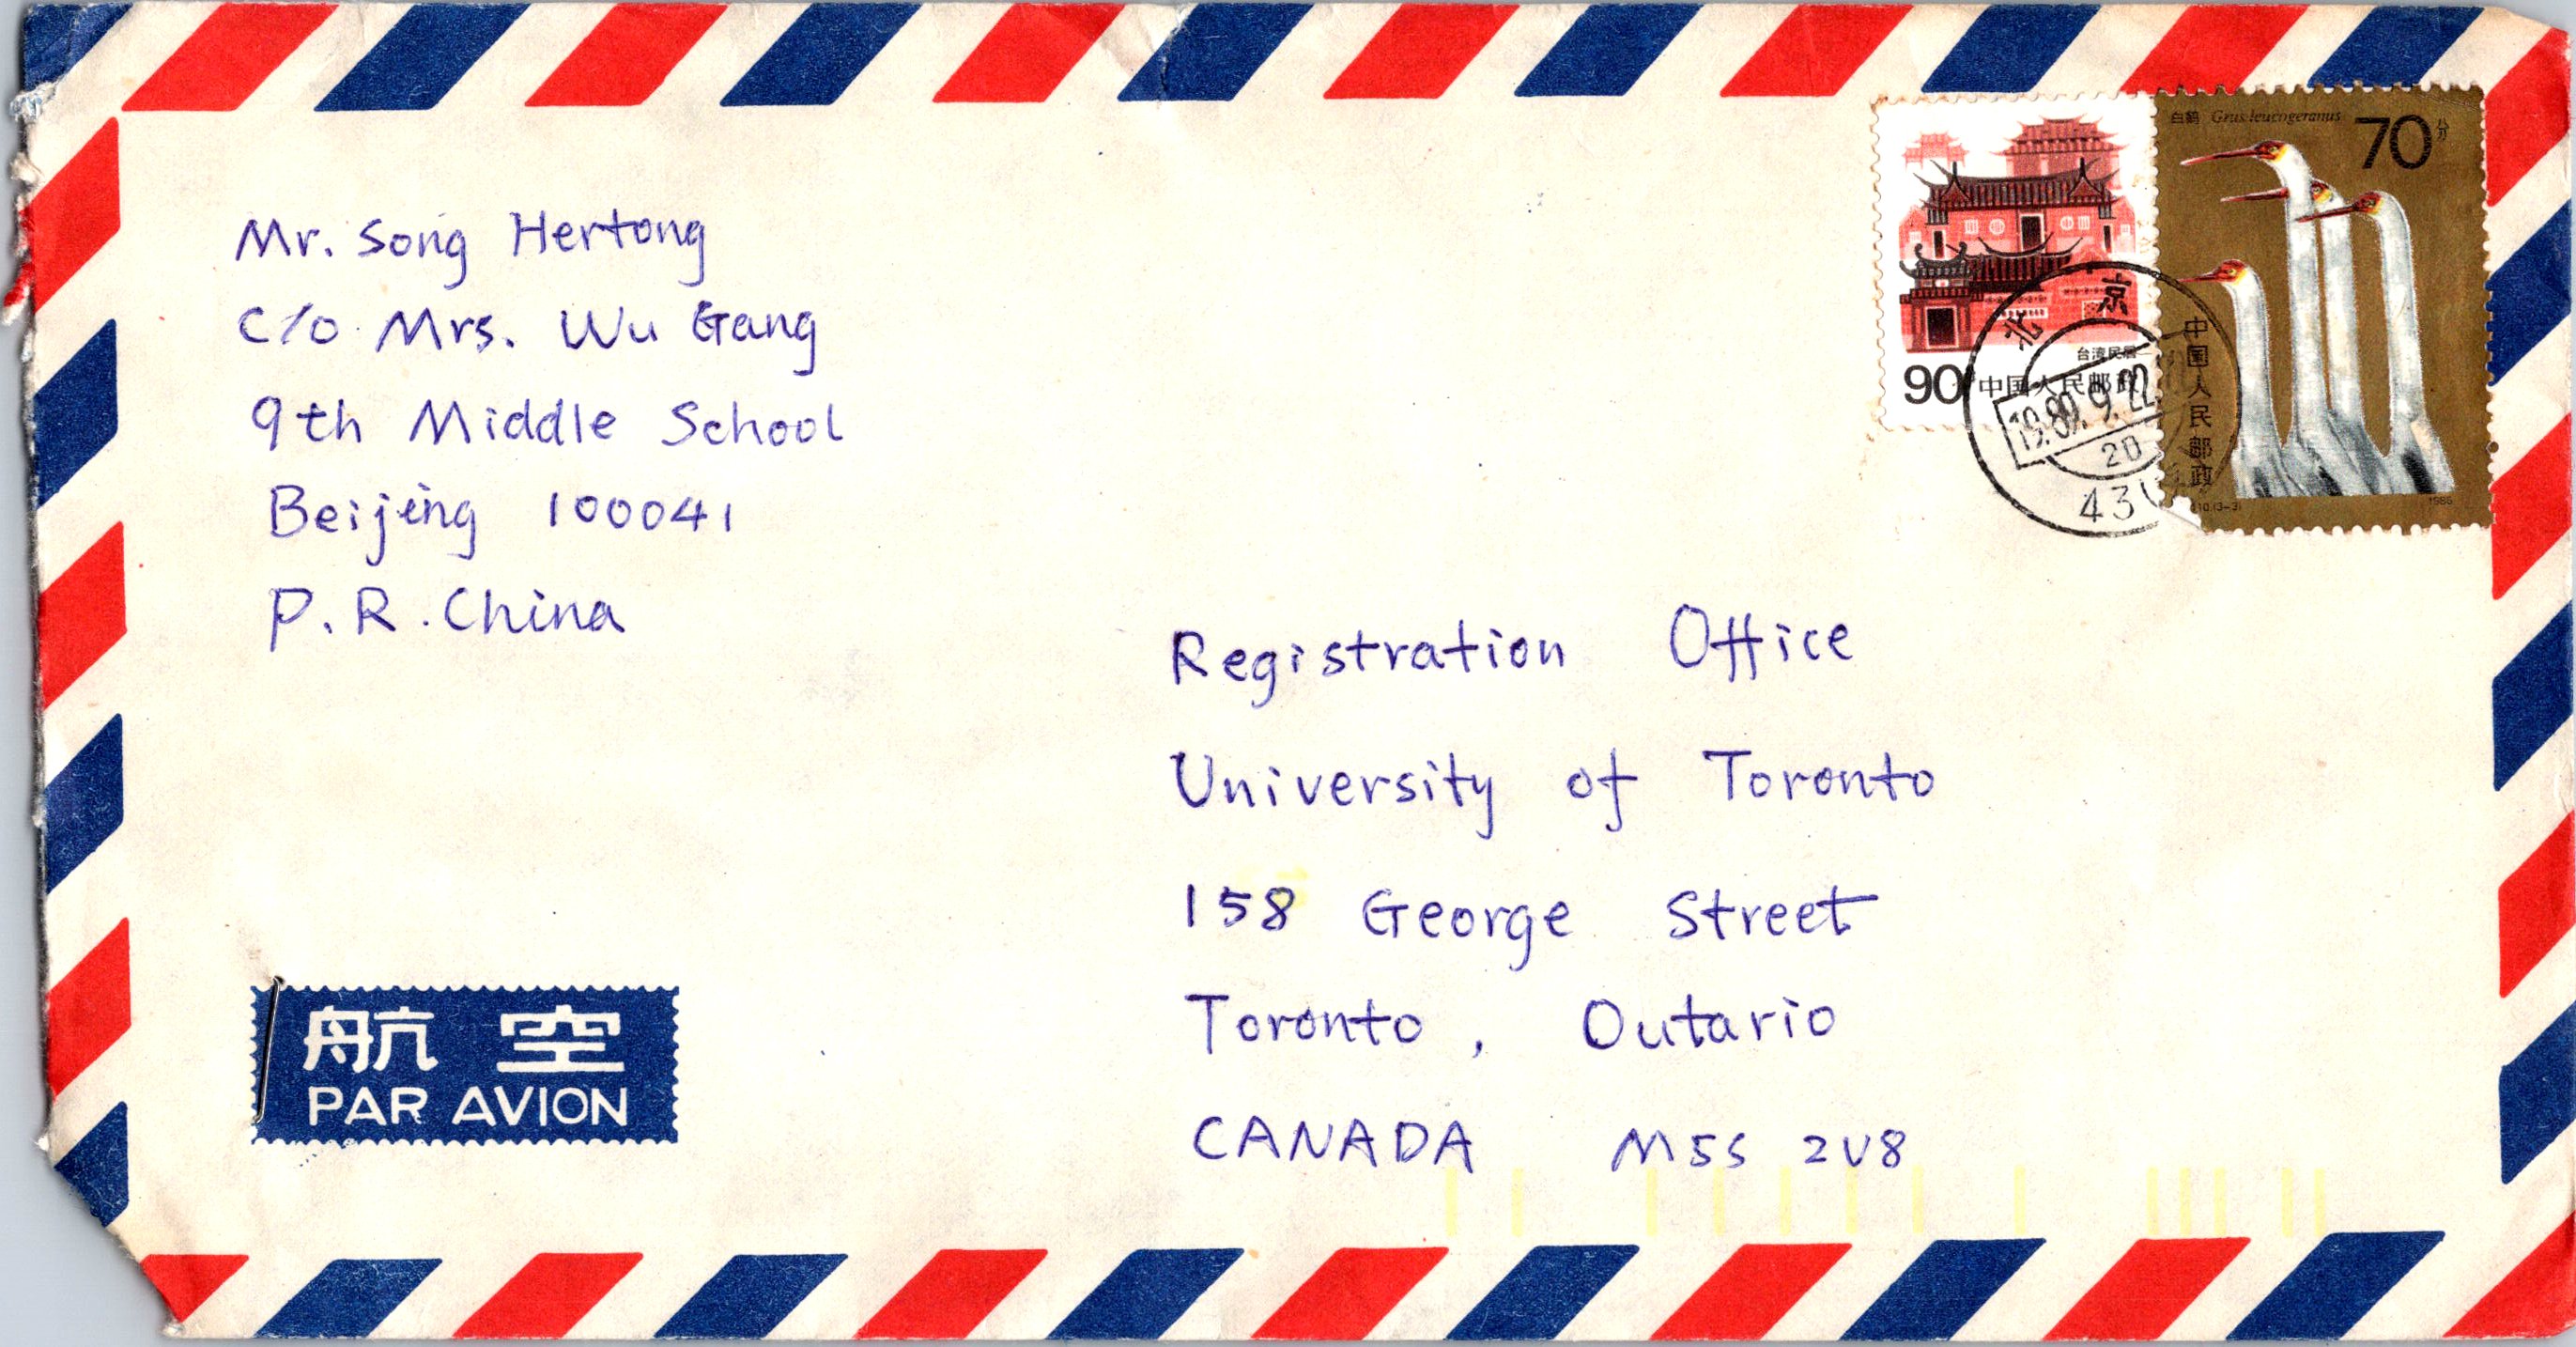 Mr. Song Hertong
C/o Mrs. Wu Gang
9th Middle School
Beijing 100041
P.R. China
台湾民居
90分 中国人民邮政
白鹤 Grus leucogeranus 70分
中国人民邮政
1986
北京
1989.9.22.
20
Registration Office
University of Toronto
158 George Street
Toronto, Outario
CANADA M5S 2V8
航空
PAR AVION